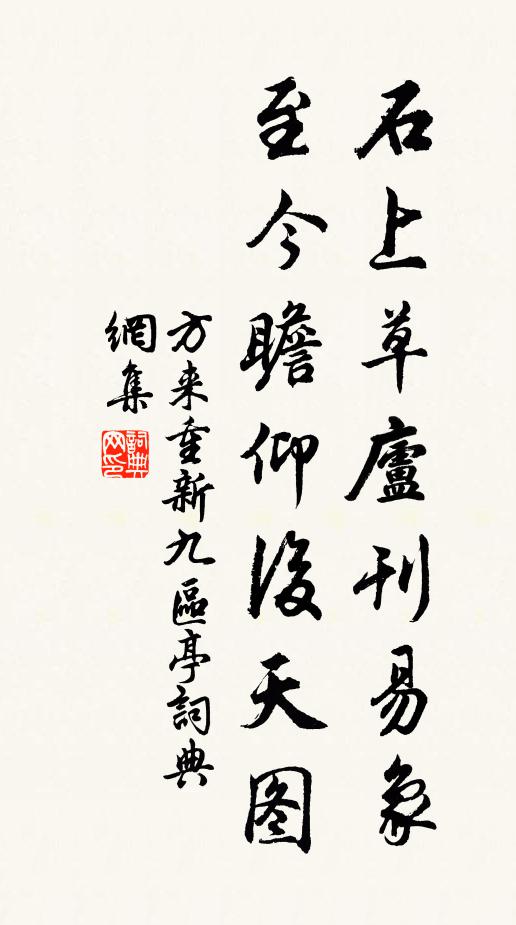 石上草廬刊易象
至今瞻仰後天图
方来重新九區亭詞典
網集
詞典
网印